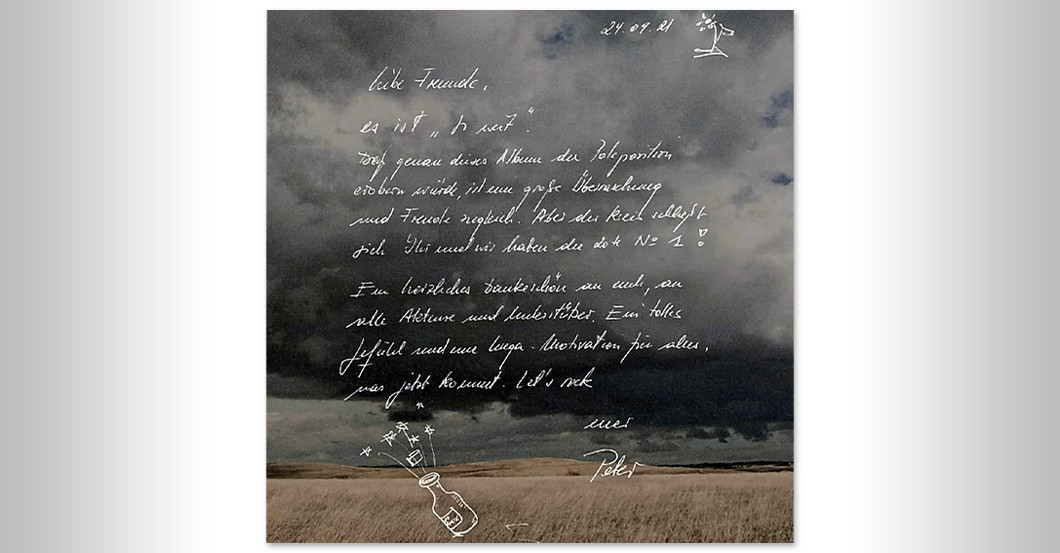 24.09.21
Liebe Freunde,
es ist „So weit“.
Daß genau dieses Album die Poleposition
erobern würde, ist eine große Überraschung
und Freude zugleich. Aber der Kreis schließt
sich. Ihr und wir haben die 20te No 1!
Ein herzliches Dankeschön an euch, an
alle Akteure und Unterstützer. Ein tolles
Gefühl und eine Mega-Motivation für alles,
was jetzt kommt. Let's rock
euer
Peter